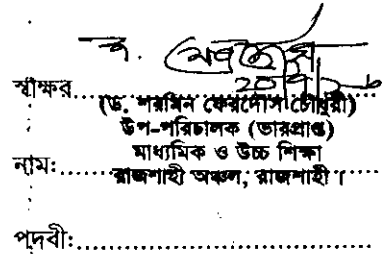 স্বাক্ষর....................
(ড. শরমিন ফেরদৌস চৌধুরী)
উপ-পরিচালক (ভারপ্রাপ্ত)
মাধ্যমিক ও উচ্চ শিক্ষা
নাম:....................
রাজশাহী অঞ্চল, রাজশাহী।
পদবী:....................